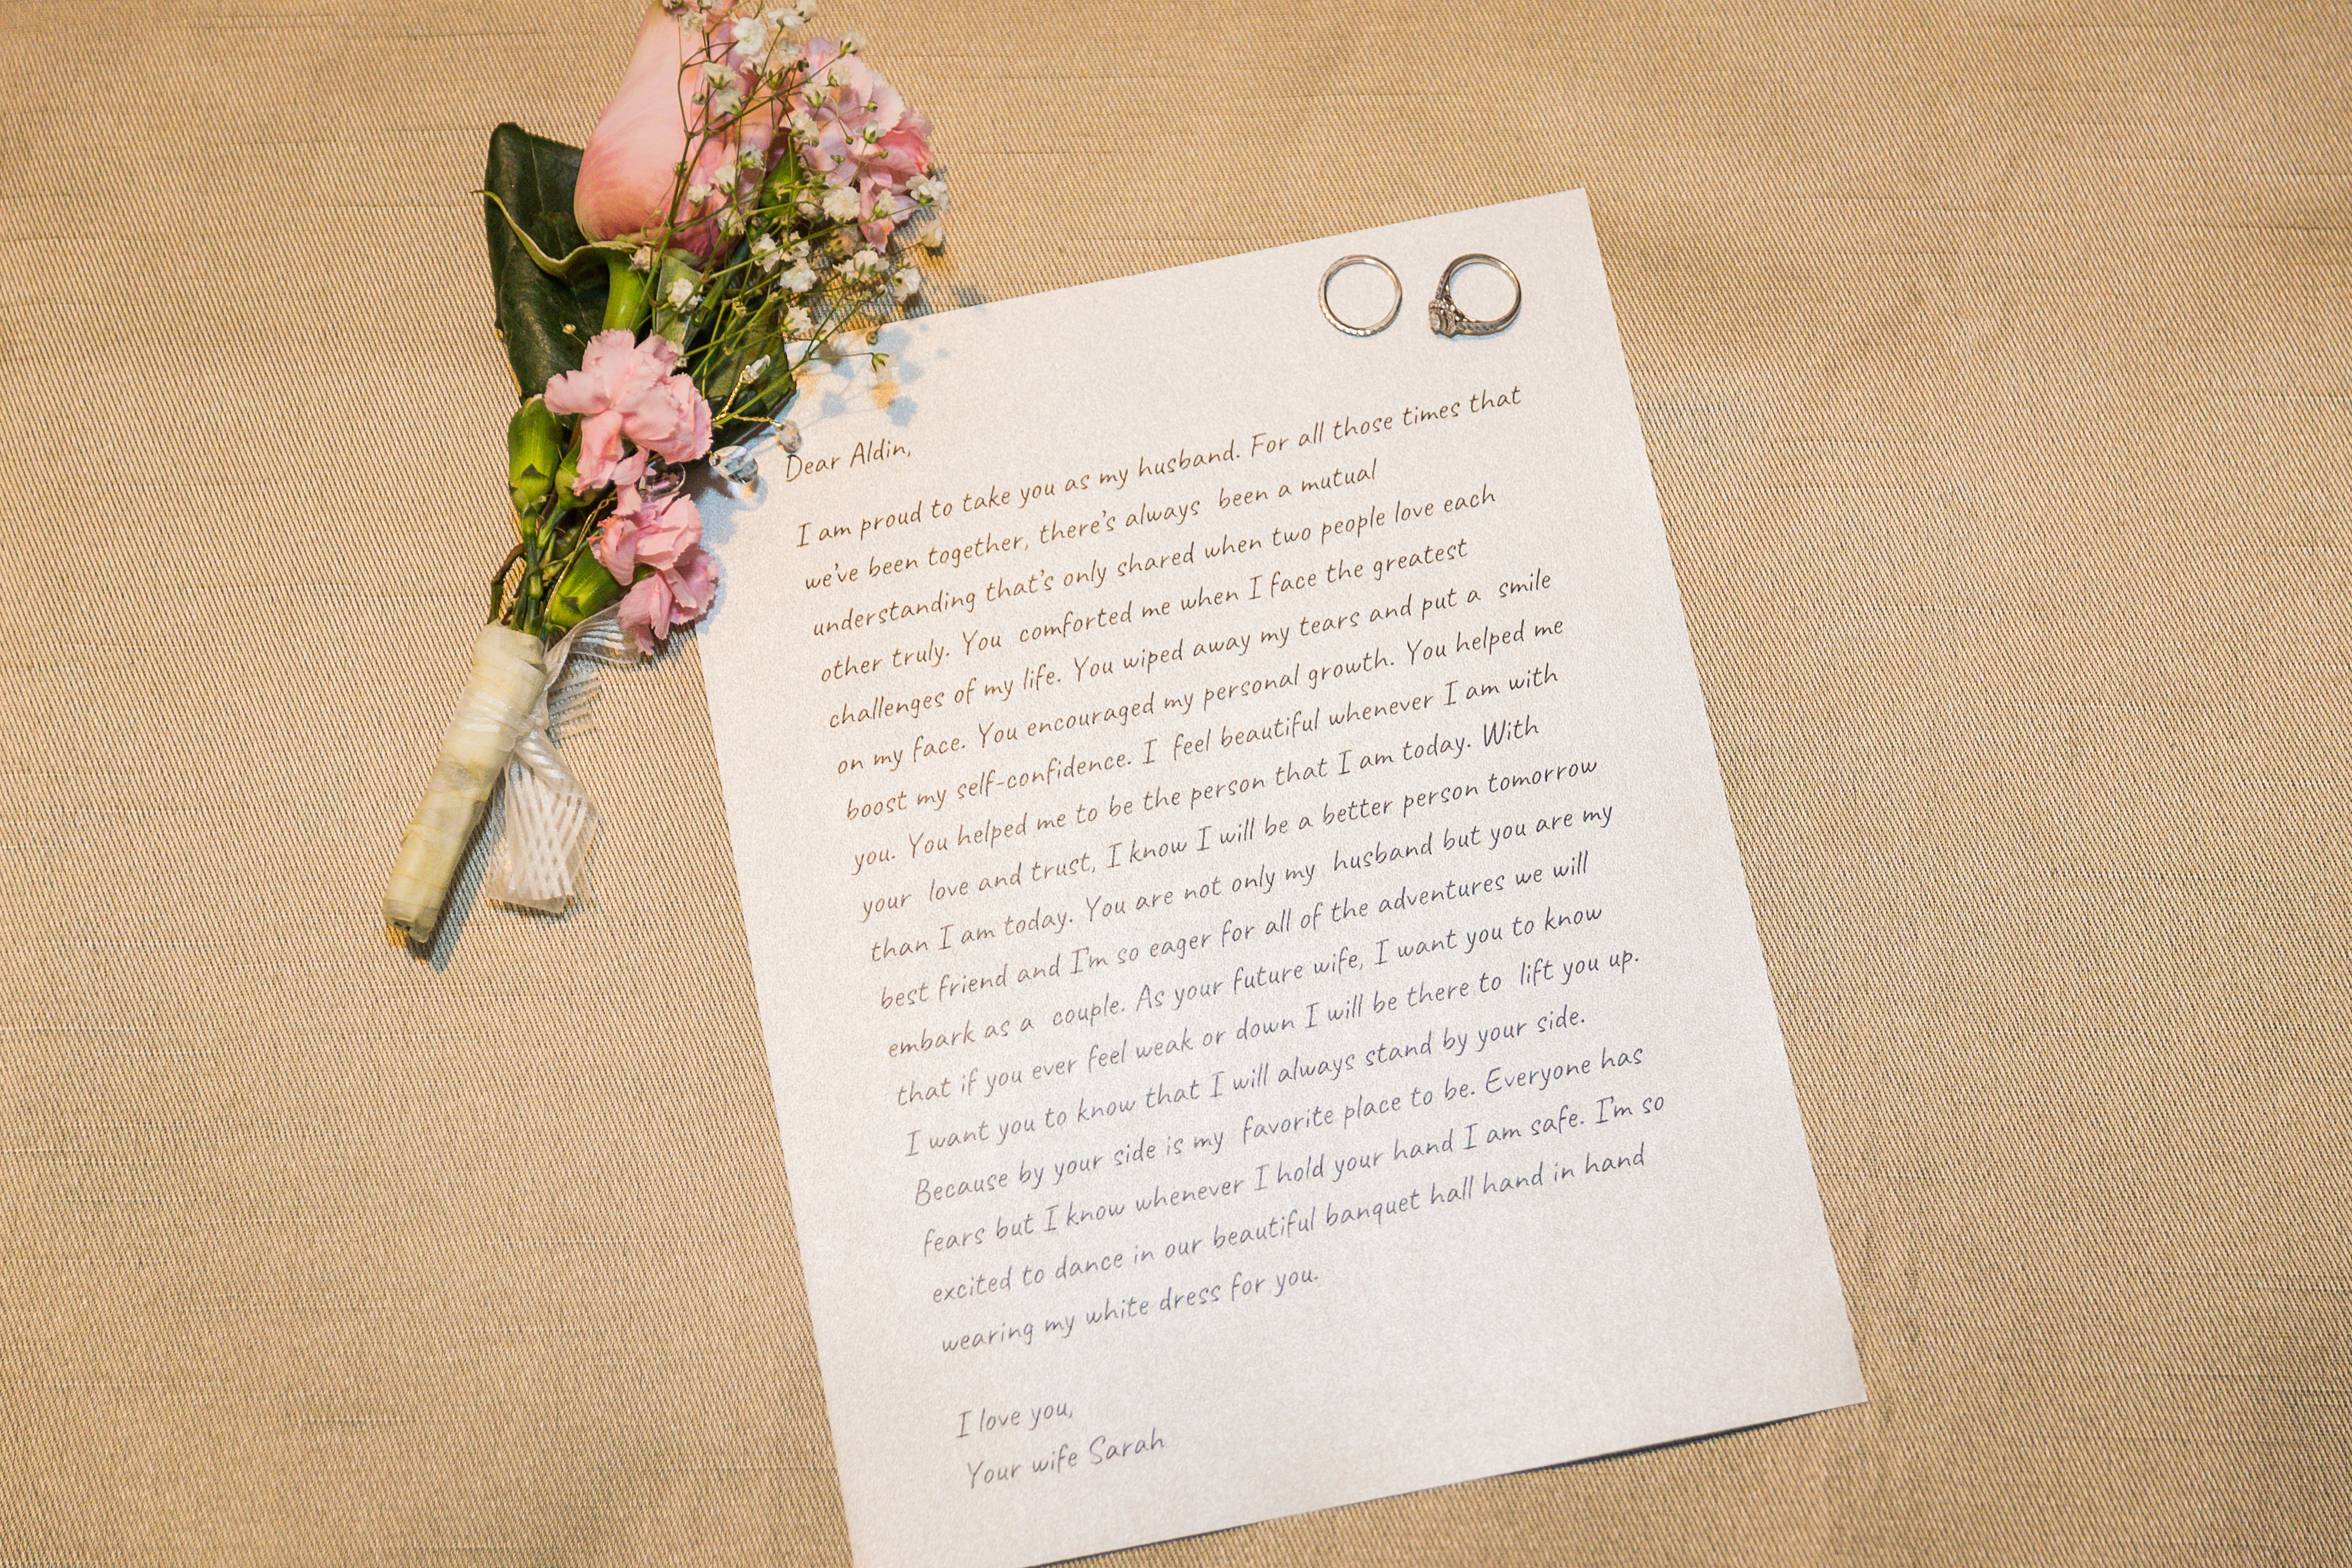 Dear Aldin,
I am proud to take you as my husband. For all those times that
we've been together, there's always been a mutual
understanding that's only shared when two people love each
other truly. You comforted me when I face the greatest
challenges of my life. You wiped away my tears and put a smile
on my face. You encouraged my personal growth. You helped me
boost my self-confidence. I feel beautiful whenever I am with
you. You helped me to be the person that I am today. With
your love and trust, I know I will be a better person tomorrow
than I am today. You are not only my husband but you are my
best friend and I'm so eager for all of the adventures we will
embark as a couple. As your future wife, I want you to know
that if you ever feel weak or down I will be there to lift you up.
I want you to know that I will always stand by your side.
Because by your side is my favorite place to be. Everyone has
fears but I know whenever I hold your hand I am safe. I'm so
excited to dance in our beautiful banquet hall hand in hand
wearing my white dress for you.
I love you,
Your wife Sarah